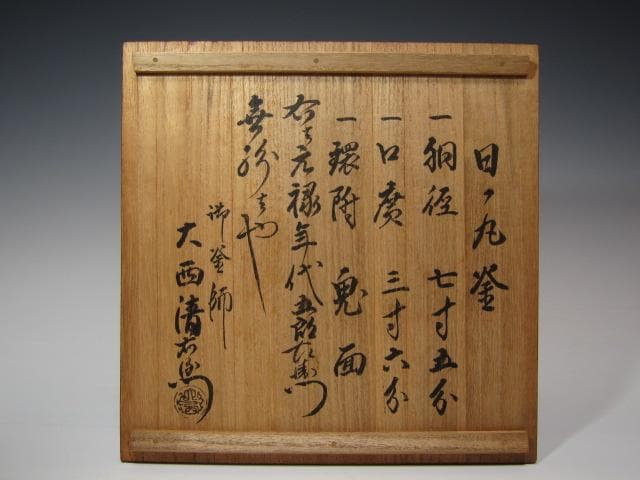 日ノ丸釜
一胴径 七寸五分
一口廣 三寸六分
一鐶附 鬼面
右者元禄年代五郎左衛門
無紛者也
御釜師
大西清右衛門